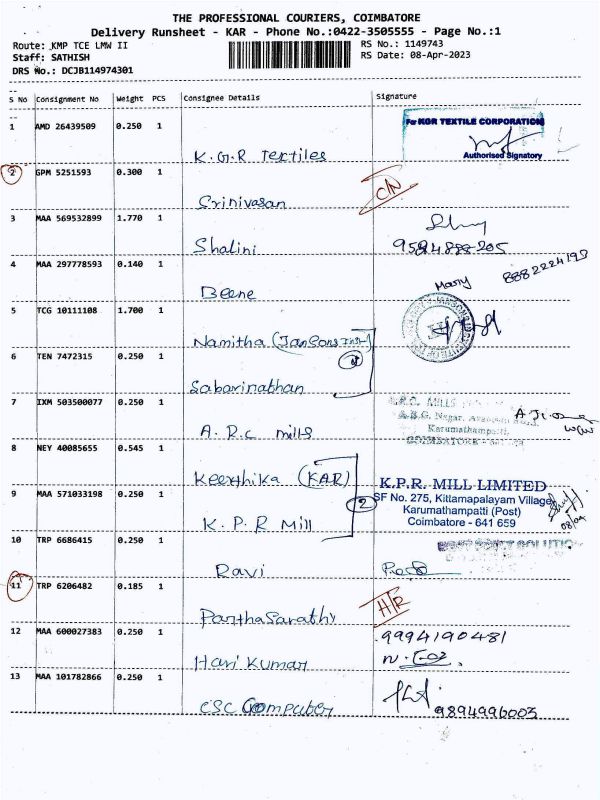 THE PROFESSIONAL COURIERS, COIMBATORE
Delivery Runsheet - KAR - Phone No.:0422-3505555 - Page No.:1
Route: KMP TCE LMW II
RS No.: 1149743
Staff: SATHISH
RS Date: 08-Apr-2023
DRS No.: DCJB114974301
S No Consignment No Weight PCS Consignee Details Signature
1 AMD 26439509 0.250 1
For KGR TEXTILE CORPORATION
K.G.R Textiles
Authorised Signatory
2 GPM 5251593 0.300 1
C/N
Srinivasan
3 MAA 569532899 1.770 1
Shalini
4 MAA 297778593 0.140 1
8882224193
Mary
Beene
5 TCG 10111108 1.700 1
Namitha (Jansons Inst)
6 TEN 7472315 0.250 1
Sabarinathan
7 IXM 503500077 0.250 1
A.R.C. MILLS
A.B.G. Nagar,
Karumathampatti,
COIMBATORE -
A.R.C mills
8 NEY 40085655 0.545 1
Keerthika (KAR)
K.P.R. MILL LIMITED
9 MAA 571033198 0.250 1
SF No. 275, Kittampalayam Village
Karumathampatti (Post)
Coimbatore - 641 659
2
08/04
K.P.R Mill
10 TRP 6686415 0.250 1
Ravi
11 TRP 6206482 0.185 1
H/R
Parthasarathy
12 MAA 600027383 0.250 1
9994190481
Hari Kumar
13 MAA 101782866 0.250 1
CSC Computer
9894996003